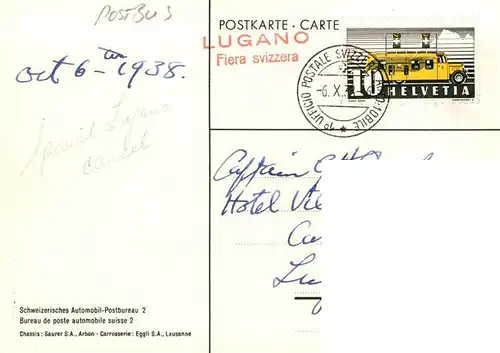 POSTBUS
POSTKARTE · CARTE
LUGANO
Fiera svizzera
1º UFFICIO POSTALE SVIZZERO AUTOMOBILE
-6. X.
10
HELVETIA
oct 6 - 1938.
Special Lugano
cancel
Captain
Hotel
Schweizerisches Automobil-Postbureau 2
Bureau de poste automobile suisse 2
Chassis: Saurer S.A., Arbon - Carrosserie: Eggli S.A., Lausanne